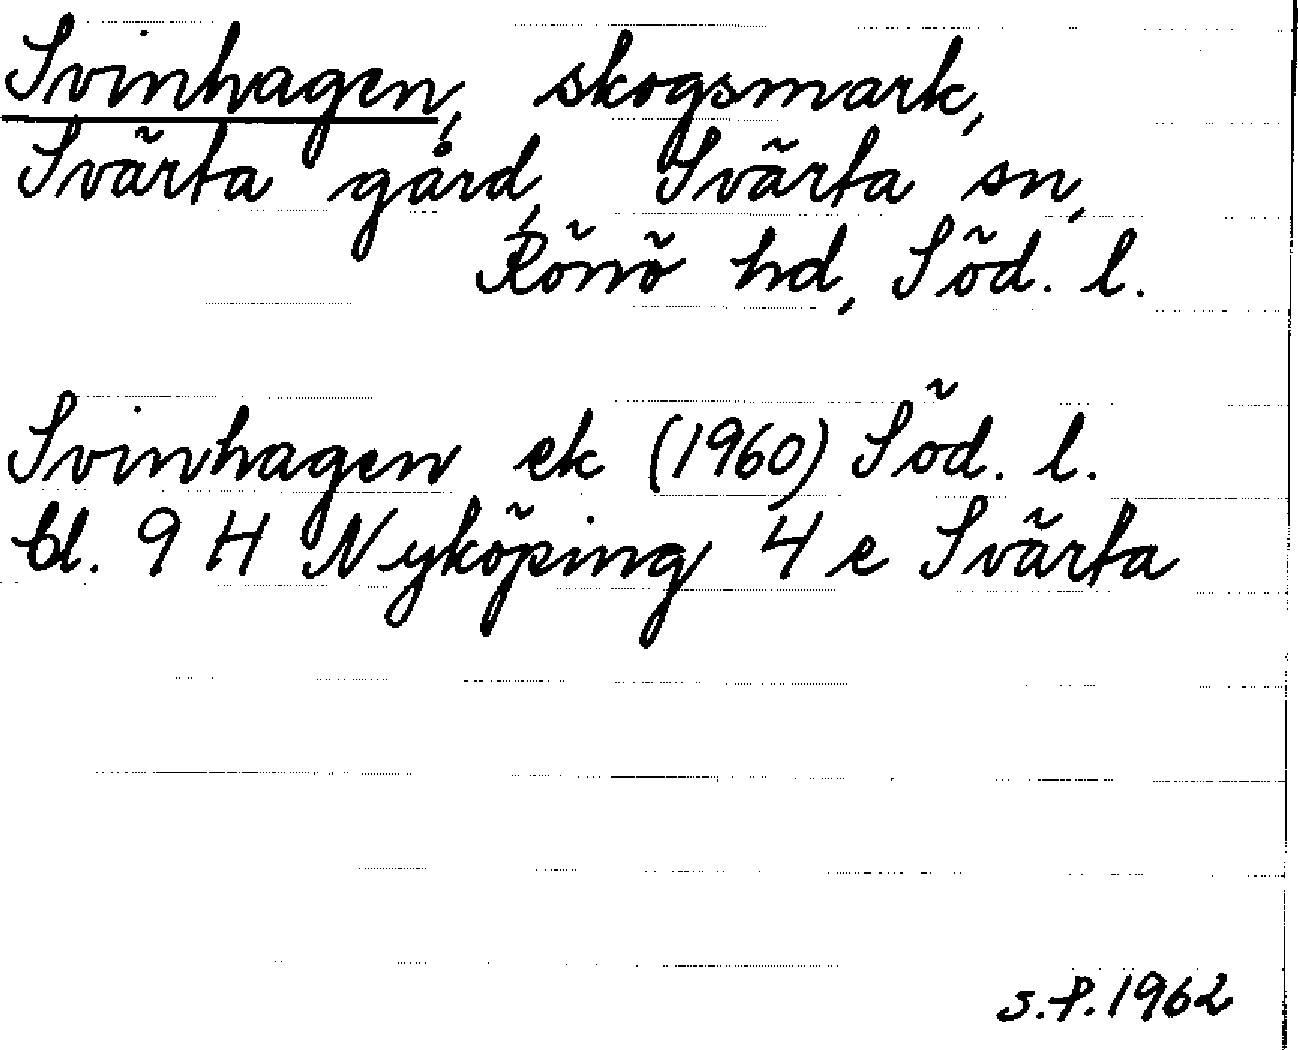 Svinhagen, skogsmark,
Svärta gård, Svärta sn,
Rönö hd, Söd. l.
Svinhagen ek (1960) Söd. l.
bl. 9 H Nyköping 4 e Svärta
S.P. 1962